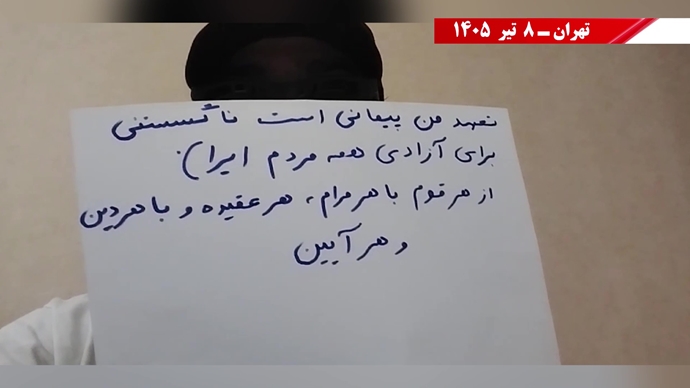 تهران ـ ۸ تیر ۱۴۰۵
تعهد من پیمانی است ناگسستنی
برای آزادی همه مردم ایران.
از هر قوم با هر مرام، هر عقیده و با هر دین
و هر آیین